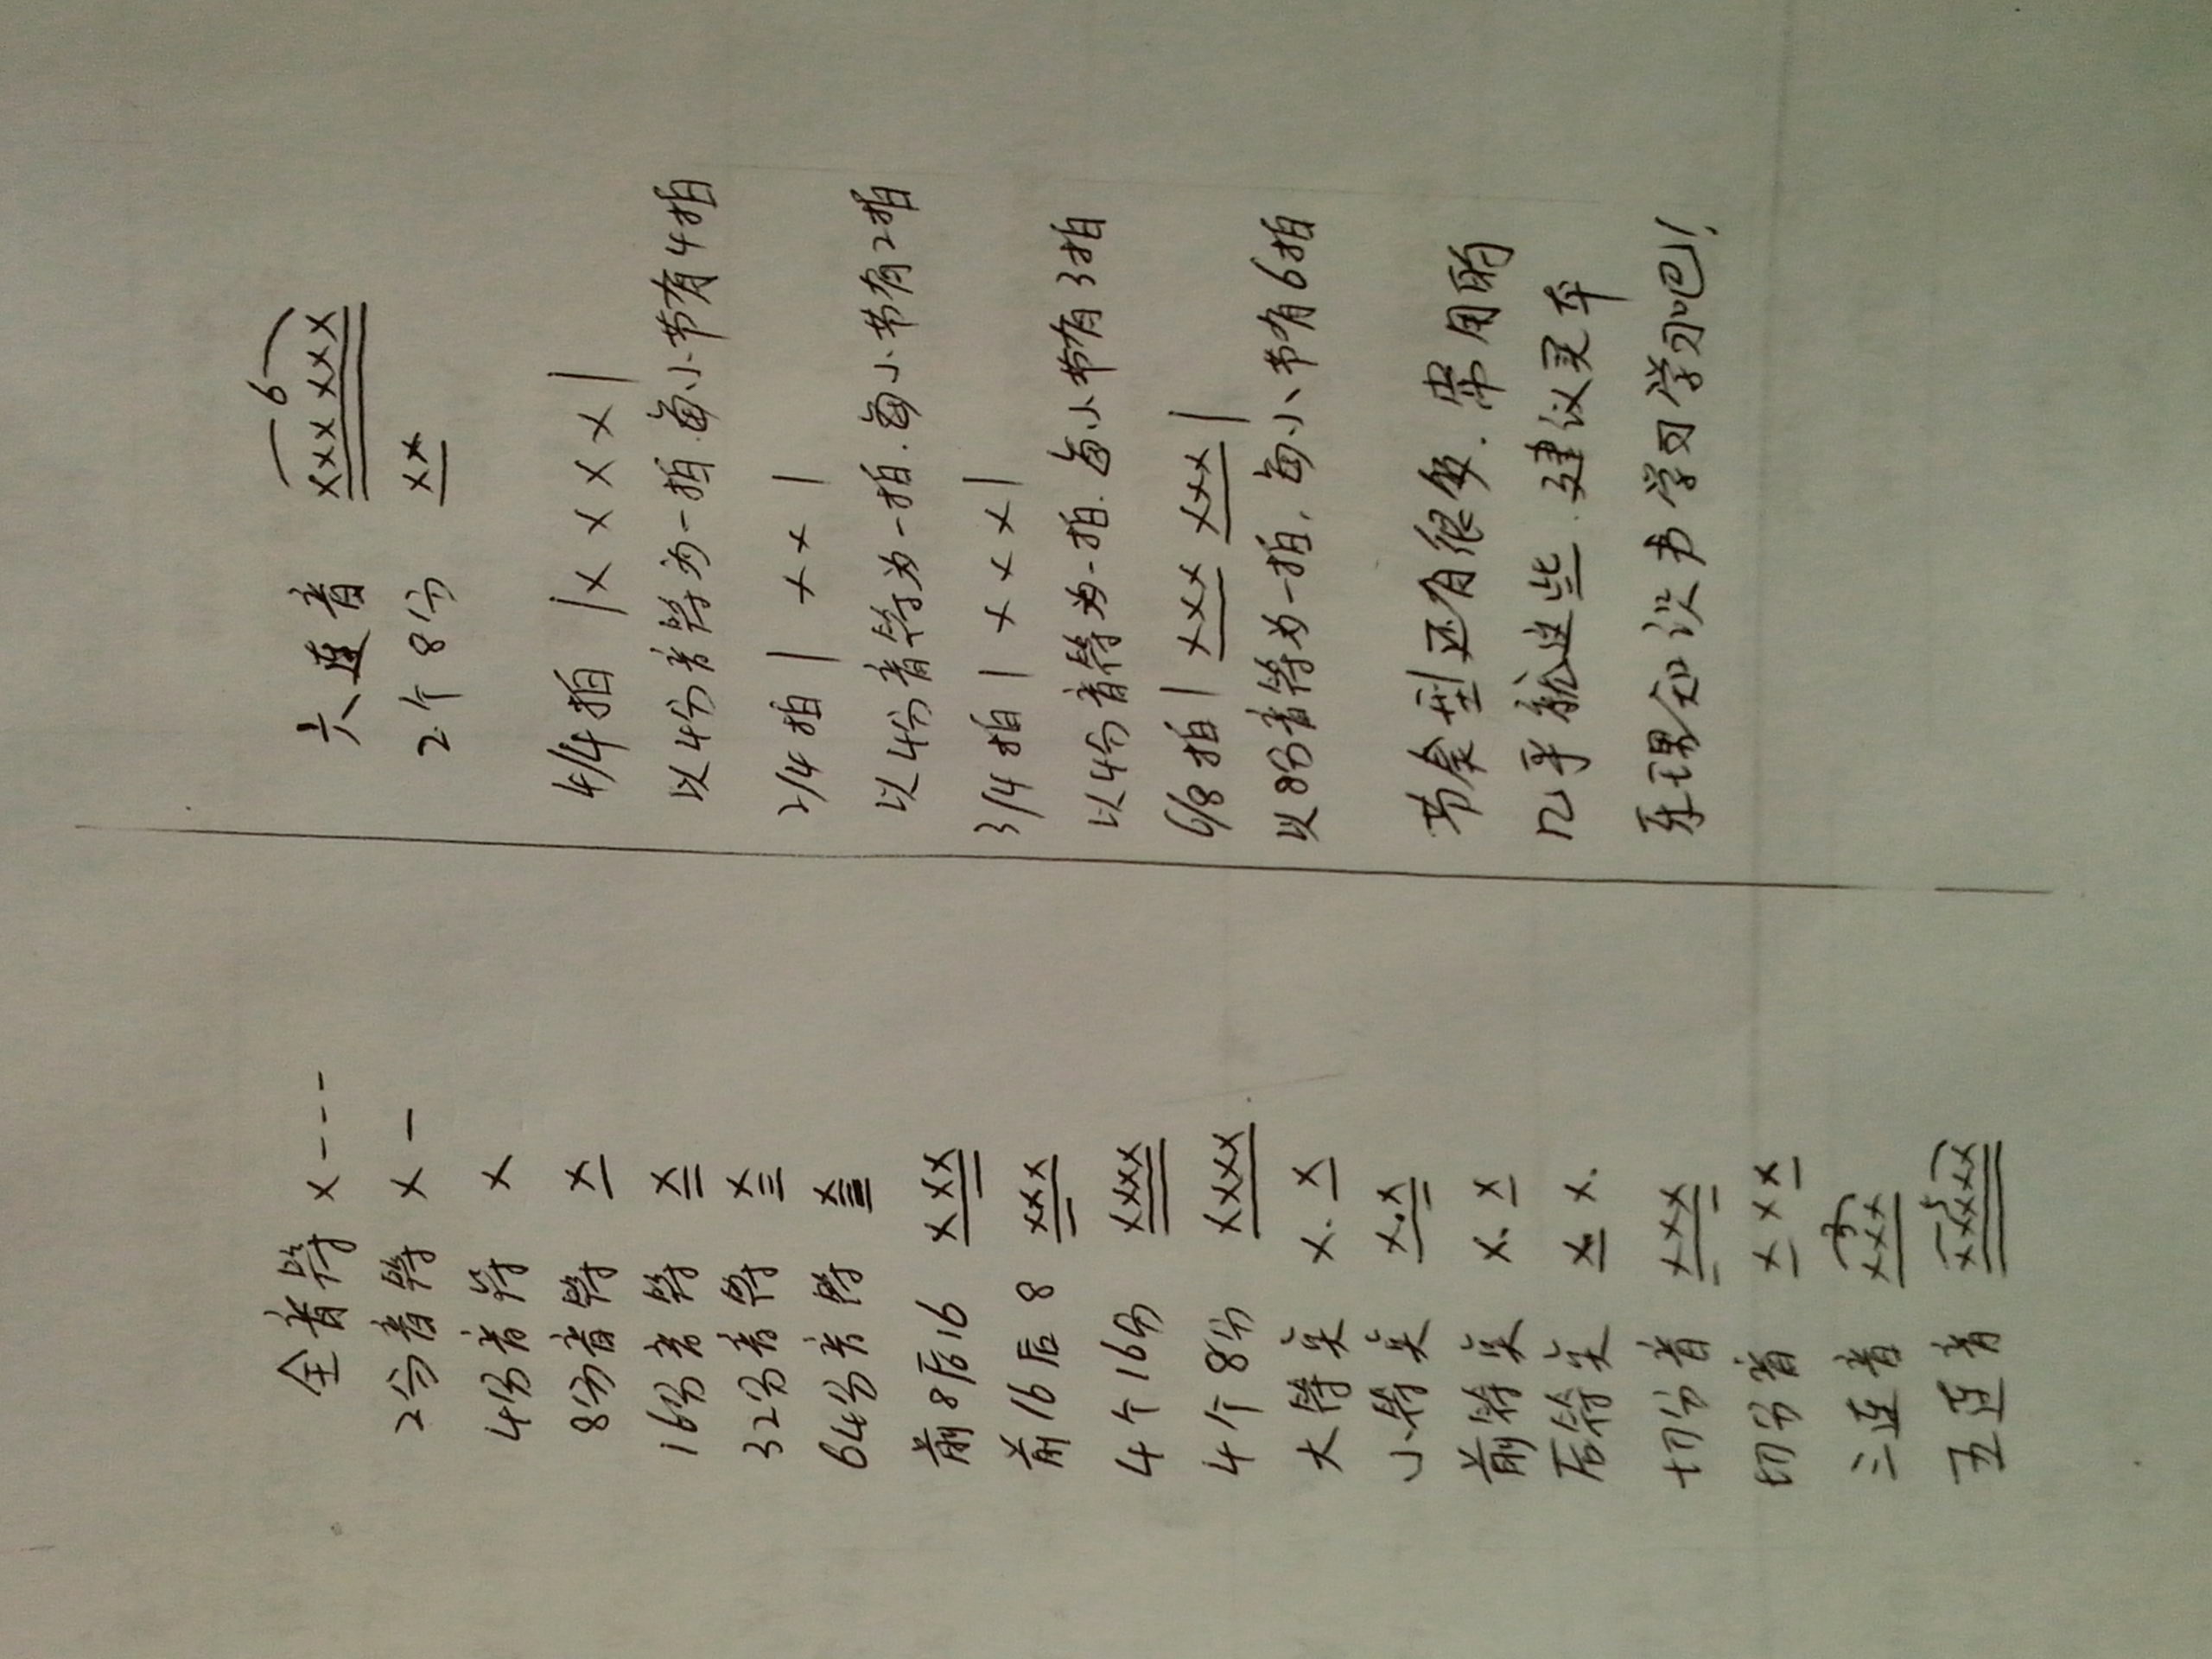 全音符 X - - -
2分音符 X -
4分音符 X
8分音符 X
16分音符 X
32分音符 X
64分音符 X
前8后16 X X X
前16后8 X X X
4个16分 X X X X
4个8分 X X X X
大符点 X. X
小符点 X. X
前符点 X. X
后符点 X X.
切分音 X X X
切分音 X X X
三连音 3 X X X
五连音 5 X X X X X
六连音 6 X X X X X X
2个8分 X X
4/4拍 | X X X X |
以4分音符为一拍.每小节有4拍
2/4拍 | X X |
以4分音符为一拍.每小节有2拍
3/4拍 | X X X |
以4分音符为一拍.每小节有3拍
6/8拍 | X X X X X X |
以8分音符为一拍.每小节有6拍
节奏型还有很多.常用的
几乎就这些.建议买本
乐理知识书学习学习吧!